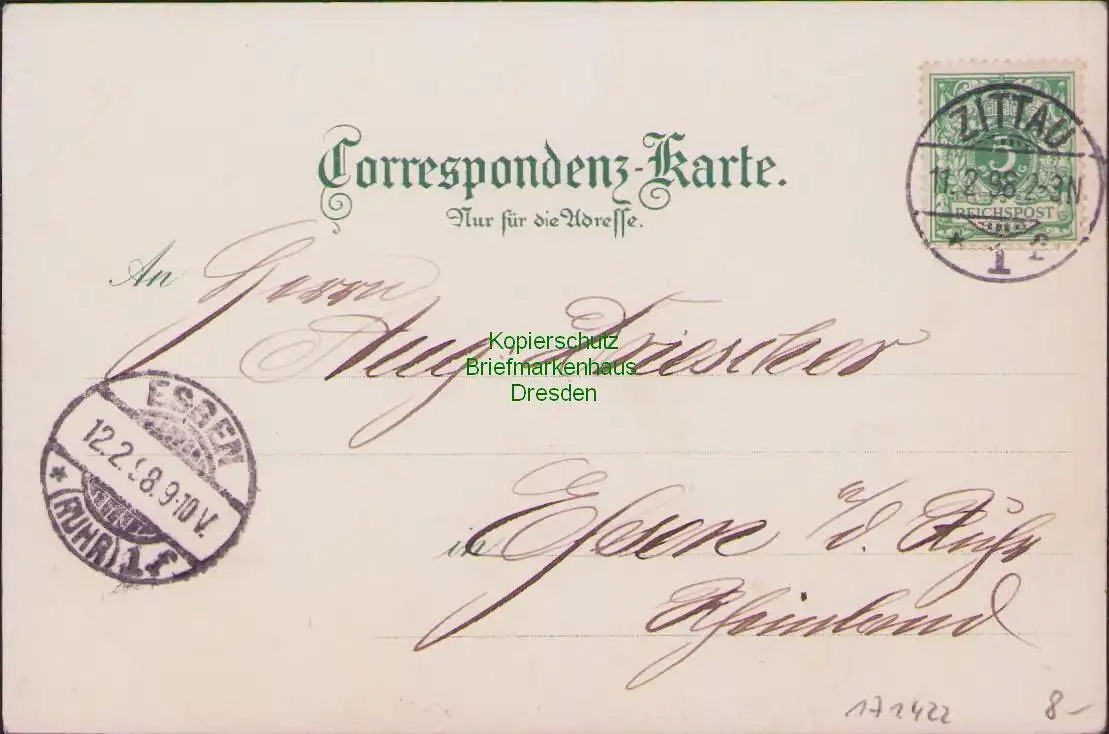 Correspondenz-Karte.
Nur für die Adresse.
ZITTAU
5
11.2.98 2-3N
REICHSPOST
* 1 f
An Herrn
Aug. Driescher
Kopierschutz
Briefmarkenhaus
Dresden
ESSEN
12.2.98.9-10V.
* (RUHR) 1 f
in Essen a/d. Ruhr
Rheinland
171422
8-